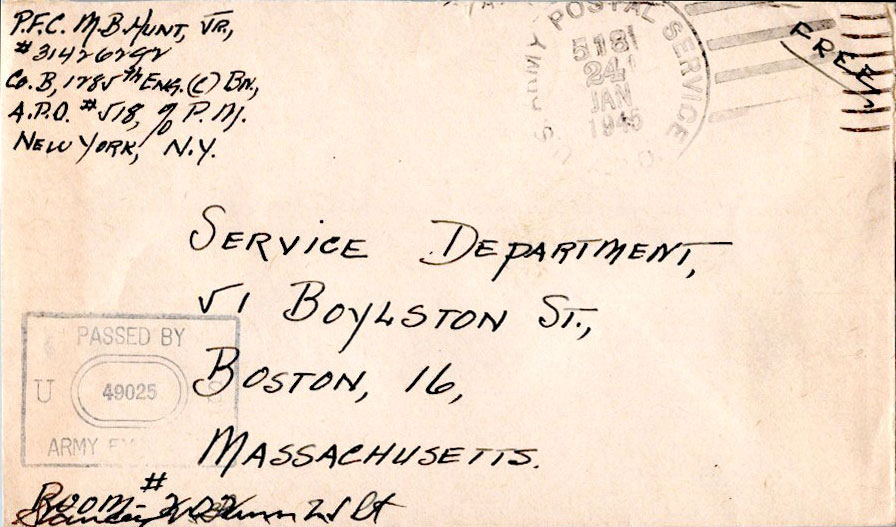 P.F.C. M.B. HUNT, JR.,
# 31426292
CO. B, 1285th ENG. (C) BN.,
A.P.O. # 518, % P.M.
NEW YORK, N.Y.
ARMY POSTAL SERVICE
518
24
JAN
1945
FREE
SERVICE DEPARTMENT,
51 BOYLSTON ST.,
BOSTON, 16,
MASSACHUSETTS.
PASSED BY
U 49025 S
ARMY
ROOM #